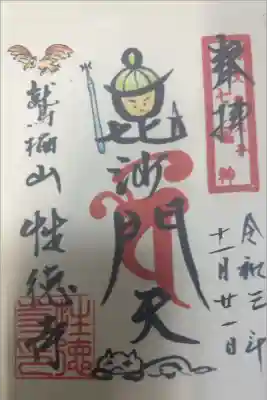 奉拝
令和三年
十一月廿一日
毘沙門天
山性徳寺